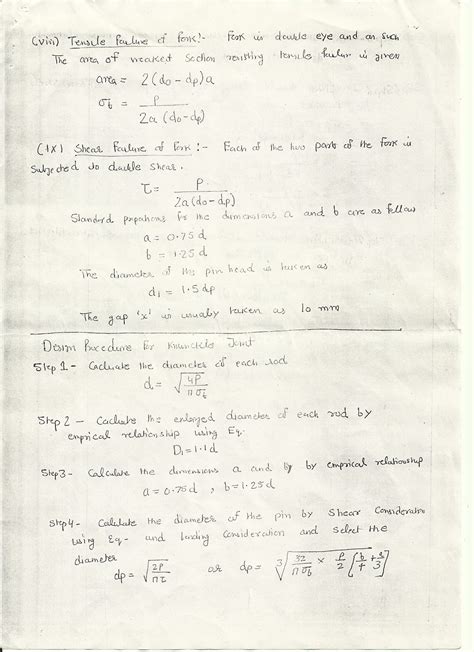 (viii) Tensile Failure of fork:- Fork is double eye and an such
The area of weakest section resisting tensile failur is given
area = 2(do - dp)a
σt = P / 2a(do - dp)
(ix) Shear Failure of Fork :- Each of the two parts of the Fork is
Subjected to double shear.
τ = P / 2a(do - dp)
Standard propotions for the dimensions a and b are as follow
a = 0.75 d
b = 1.25 d
The diameter of the pin head is taken as
d1 = 1.5 dp
The gap 'x' is usually taken as 10 mm
Design Procedure for Knuncicle Joint
Step 1 - Caclulate the diameter of each rod
d = √(4P / πσt)
Step 2 - Caclulate the enlarged diameter of each rod by
emprical relationship using Eq.
D1 = 1.1 d
Step 3 - Calculate the dimensions a and by by emprical relationship
a = 0.75 d , b = 1.25 d
Step 4 - Calculate the diameter of the pin by Shear Consideration
using Eq- and Consideration and Select the
diameter
dp = √(2P / πτ) or dp = ³√(32 / πσb × P / 2 [b / 4 + a / 3])